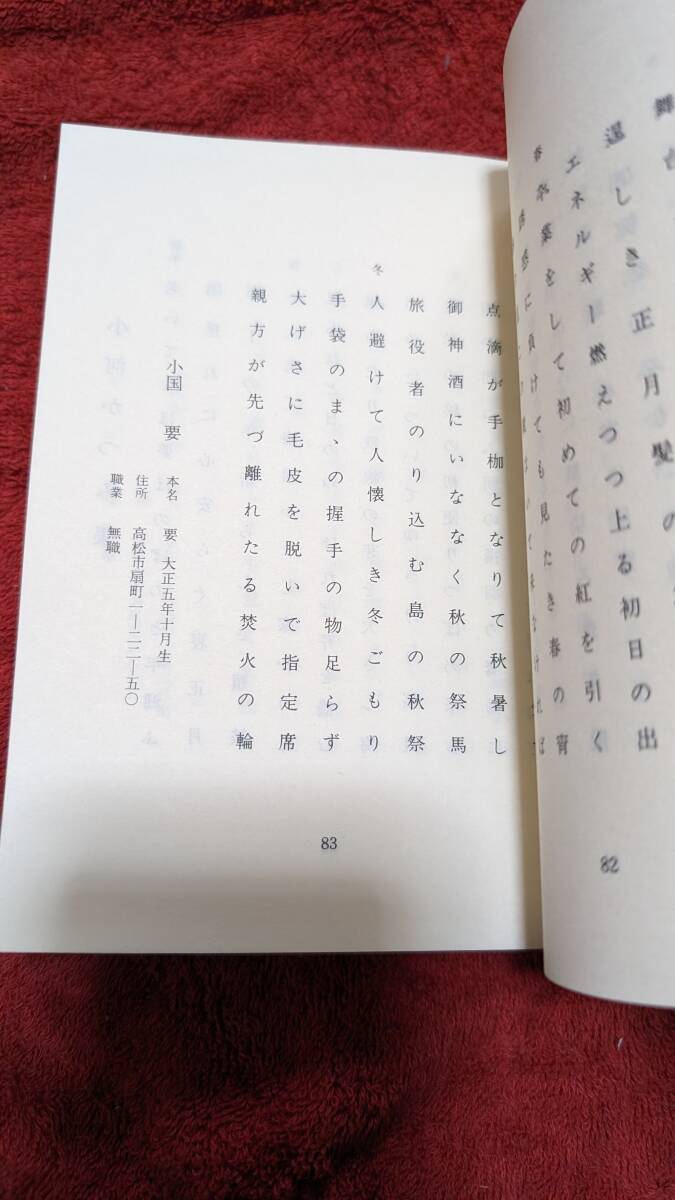 舞台
逞しき正月髪の
エネルギー燃えつつ上る初日の出
卒業をして初めての紅を引く
に負けても見たき春の宵
82
点滴が手枷となりて秋暑し
御神酒にいななく秋の祭馬
旅役者のり込む島の秋祭
冬
人避けて人懐しき冬ごもり
手袋のまゝの握手の物足らず
大げさに毛皮を脱いで指定席
親方が先づ離れたる焚火の輪
小国 要
本名 要 大正五年十月生
住所 高松市扇町一―二二―五〇
職業 無職
83